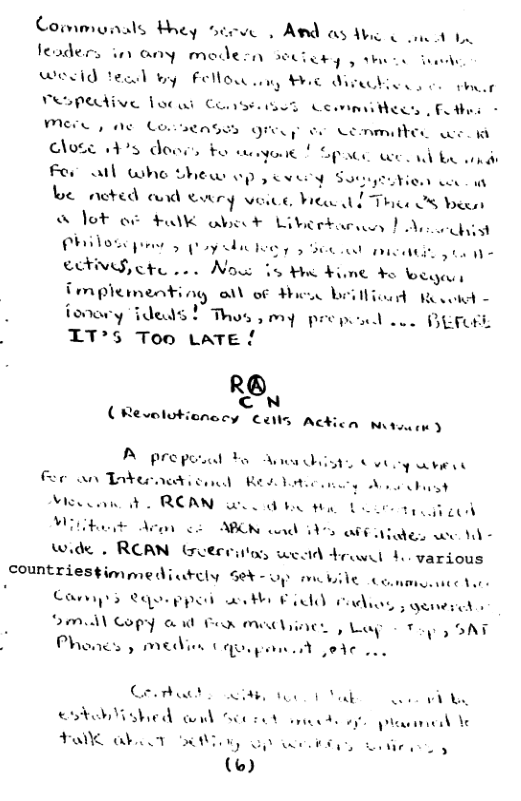 Communals they serve. And as there must be
leaders in any modern society, these leaders
would lead by following the directives of their
respective local consensus committees. Further-
more, no consensus group or committee would
close it's doors to anyone! Space would be made
for all who show up, every suggestion would
be noted and every voice heard! There's been
a lot of talk about Libertarian/Anarchist
philosophy, psychology, social models, coll-
ectives, etc... Now is the time to began
implementing all of these brilliant Revolut-
ionary ideals! Thus, my proposal... BEFORE
IT'S TOO LATE!
RA
CN
(Revolutionary Cells Action Network)
A proposal to Anarchists everywhere
for an International Revolutionary Anarchist
Movement. RCAN would be the
Militant Arm of ABCN and it's affiliates world-
wide. RCAN Guerrillas would travel to various
countries immediately set-up mobile communication
camps equipped with field radios, generators
small copy and fax machines, Lap-Top, SAT
Phones, media equipment, etc...
Contacts with local would be
established and secret meetings planned to
talk about setting up workers unions,
(6)